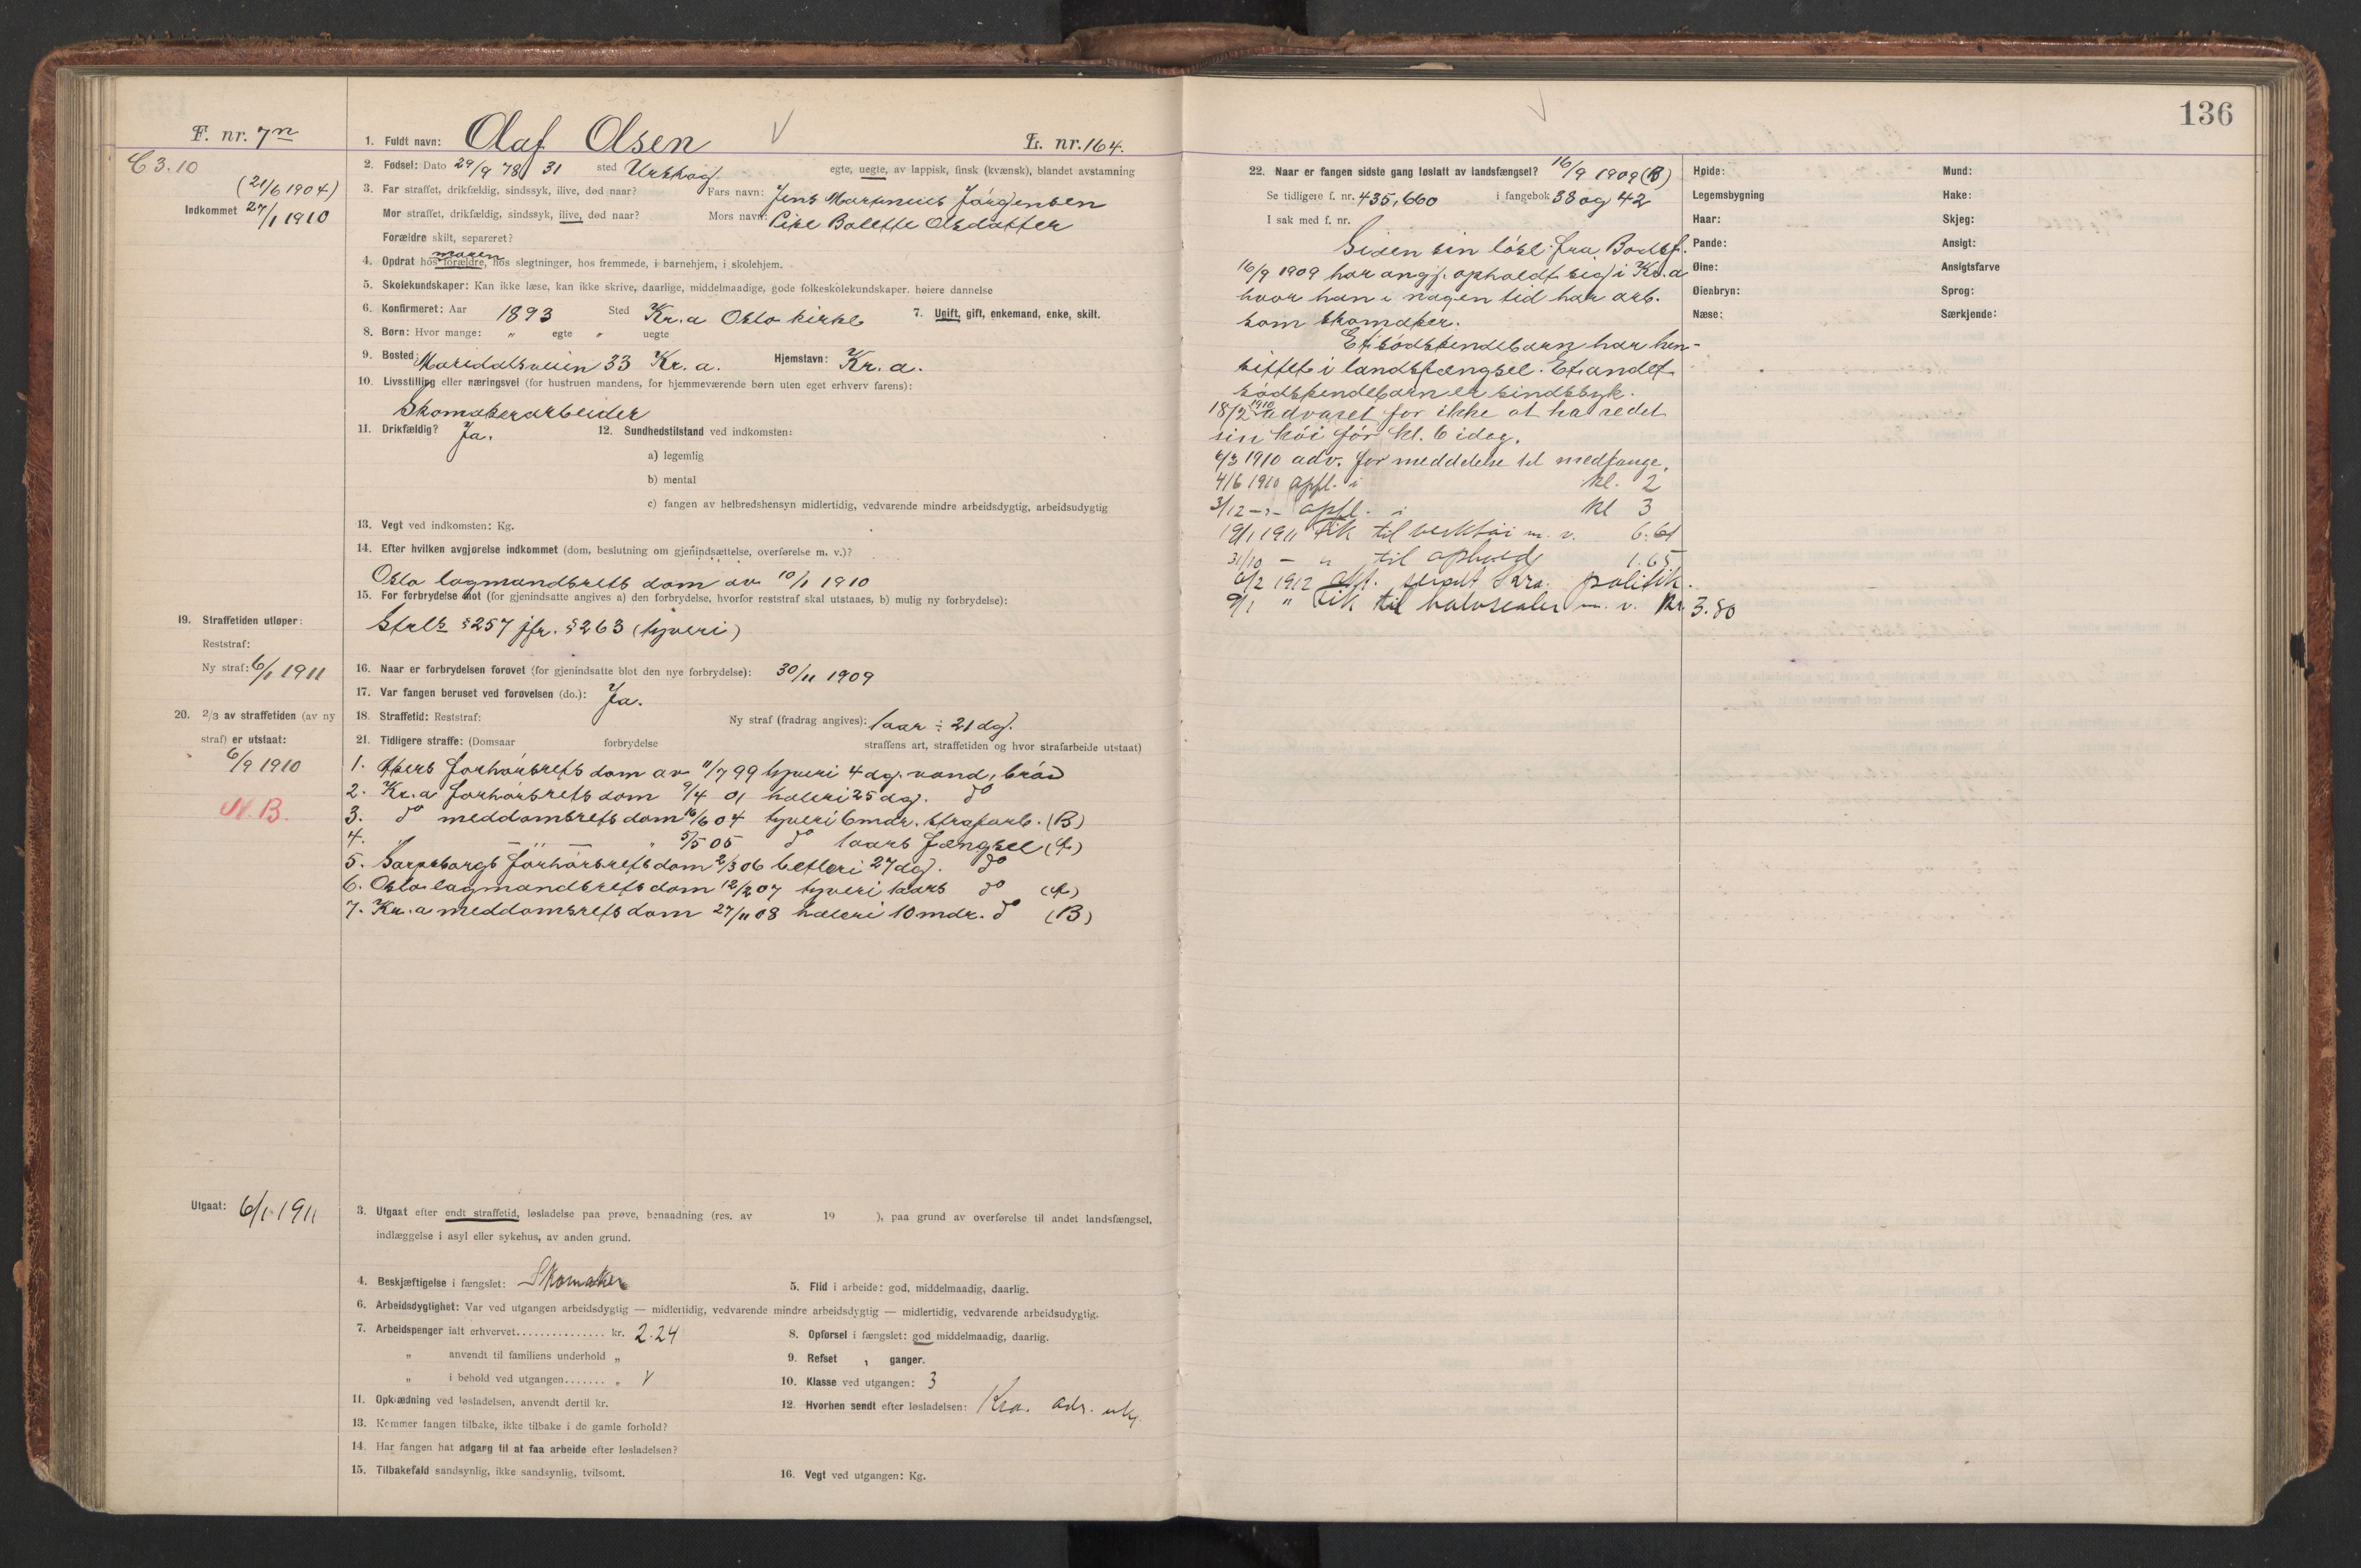 136
F. nr. 7n
C 3.10
(21/6 1904)
Indkommet 27/1 1910
1. Fuldt navn: Olaf Olsen
L. nr. 164.
2. Fødsel: Dato 29/9 78 31 sted Urskog egte, uegte, av lappisk, finsk (kvænsk), blandet avstamning
3. Far straffet, drikfældig, sindssyk, ilive, død naar? Fars navn: Jens Martineus Jørgensen
Mor straffet, drikfældig, sindssyk, ilive, død naar? Mors navn: Pike Bolette Olsdatter
Forældre skilt, separeret?
moren
4. Opdrat hos forældre, hos slegtninger, hos fremmede, i barnehjem, i skolehjem.
5. Skolekundskaper: Kan ikke læse, kan ikke skrive, daarlige, middelmaadige, gode folkeskolekundskaper. høiere dannelse
6. Konfirmeret: Aar 1893 Sted Kr.a Oslo kirke 7. Ugift, gift, enkemand, enke, skilt.
8. Børn: Hvor mange: „ egte „ uegte
9. Bosted: Maridalsveien 33 Kr.a. Hjemstavn: Kr.a.
10. Livsstilling eller næringsvei (for hustruen mandens, for hjemmeværende børn uten eget erhverv farens):
Skomakerarbeider
11. Drikfældig? Ja. 12. Sundhedstilstand ved indkomsten:
a) legemlig
b) mental
c) fangen av helbredshensyn midlertidig, vedvarende mindre arbeidsdygtig, arbeidsudygtig
13. Vegt ved indkomsten: Kg.
14. Efter hvilken avgjørelse indkommet (dom, beslutning om gjenindsættelse, overførelse m. v.)?
Oslo lagmandsrets dom av 10/1 1910
15. For forbrydelse mot (for gjenindsatte angives a) den forbrydelse, hvorfor reststraf skal utstaaes, b) mulig ny forbrydelse):
Strl. § 257 jfr. § 263 (tyveri)
19. Straffetiden utløper:
Reststraf:
Ny straf: 6/1 1911
16. Naar er forbrydelsen forøvet (for gjenindsatte blot den nye forbrydelse): 30/11 1909
17. Var fangen beruset ved forøvelsen (do.): Ja.
20. 2/3 av straffetiden (av ny straf) er utstaat:
6/9 1910
N.B.
18. Straffetid: Reststraf: Ny straf (fradrag angives): 1 aar ÷ 21 dg.
21. Tidligere straffe: (Domsaar forbrydelse straffens art, straffetiden og hvor strafarbeide utstaat)
1. Akers forhørsrets dom av 11/7 99 tyveri 4 dg. vand, brød
2. Kr.a forhørsrets dom 9/4 01 hæleri 25 dg. do
3. do meddomsrets dom 16/6 04 tyveri 6 mdr. strafarb. (B)
4. — „ — „ 5/5 05 do 1 aars fængsel
5. Sarpsborgs forhørsrets dom 2/3 06 betleri 27 dg. do
6. Oslo lagmandsrets dom 12/2 07 tyveri 1 aars do
7. Kr.a meddomsrets dom 27/11 08 hæleri 10 mdr. do (B)
Utgaat: 6/1 1911
3. Utgaat efter endt straffetid, løsladelse paa prøve, benaadning (res. av 19 ), paa grund av overførelse til andet landsfængsel,
indlæggelse i asyl eller sykehus, av anden grund.
4. Beskjæftigelse i fængslet: Skomaker 5. Flid i arbeide: god, middelmaadig, daarlig.
6. Arbeidsdygtighet: Var ved utgangen arbeidsdygtig — midlertidig, vedvarende mindre arbeidsdygtig — midlertidig, vedvarende arbeidsudygtig.
7. Arbeidspenger ialt erhvervet............... kr. 2.24 8. Opførsel i fængslet: god middelmaadig, daarlig.
„ anvendt til familiens underhold „ 9. Refset , ganger.
„ i behold ved utgangen....... „ 10. Klasse ved utgangen: 3
11. Opklædning ved løsladelsen, anvendt dertil kr. 12. Hvorhen sendt efter løsladelsen: Kra. adr.
13. Kommer fangen tilbake, ikke tilbake i de gamle forhold?
14. Har fangen hat adgang til at faa arbeide efter løsladelsen?
15. Tilbakefald sandsynlig, ikke sandsynlig, tvilsomt. 16. Vegt ved utgangen: Kg.
22. Naar er fangen sidste gang løslatt av landsfængsel? 16/9 1909 (B)
Se tidligere f. nr. 435, 660 i fangebok 38 og 42
I sak med f. nr.
Siden sin løsl. fra Bodsf.
16/9 1909 har angj. opholdt sig i Kr.a
hvor han i nogen tid har arb.
som skomaker.
Et sødskendebarn har hen-
sittet i landsfængsel. Et andet
sødskendebarn er sindssyk.
18/2 1910 advaret for ikke at ha redet
sin køi før kl. 6 idag.
6/3 1910 adv. for meddelelse til medfange.
4/6 1910 opfl. i kl. 2
3/12 — „ — opfl. i kl 3
19/1 1911 Fik til verktøi m. v. 6.61
31/10 — „ til ophold 1.65
6/2 1912 sendt Kra. politik.
9/1 „ Fik til halvsaaler m. v. Kr. 3.80
Høide: Mund:
Legemsbygning Hake:
Haar: Skjeg:
Pande: Ansigt:
Øine: Ansigtsfarve
Øienbryn: Sprog:
Næse: Særkjende: